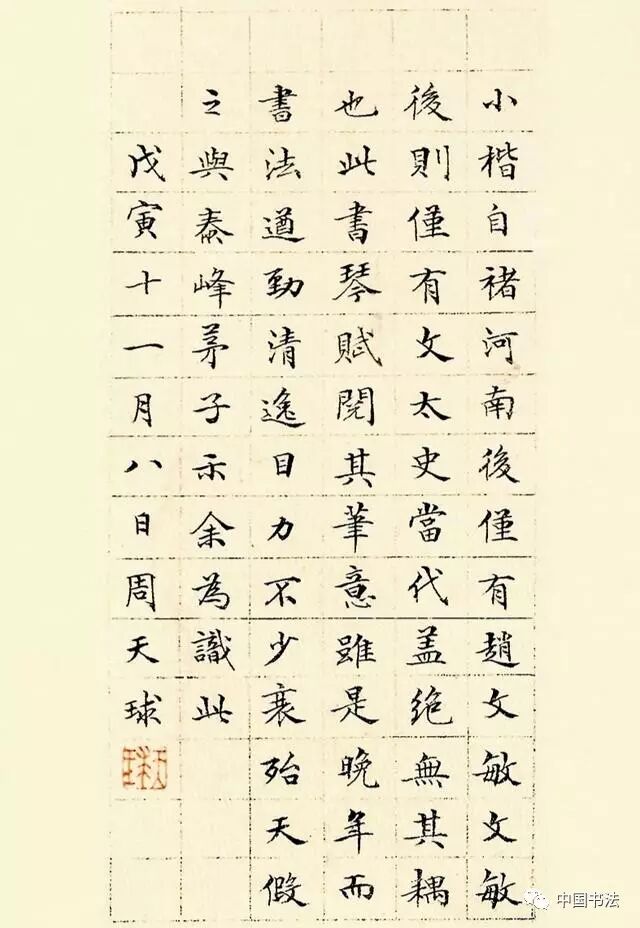 小楷自褚河南後僅有趙文敏文敏
後則僅有文太史當代盖绝無其耦
也此書琴賦閱其筆意雖是晚年而
書法遒勁清逸目力不少衰殆天假
之與泰峰茅子示余為識此
戊寅十一月八日周天球
中国书法